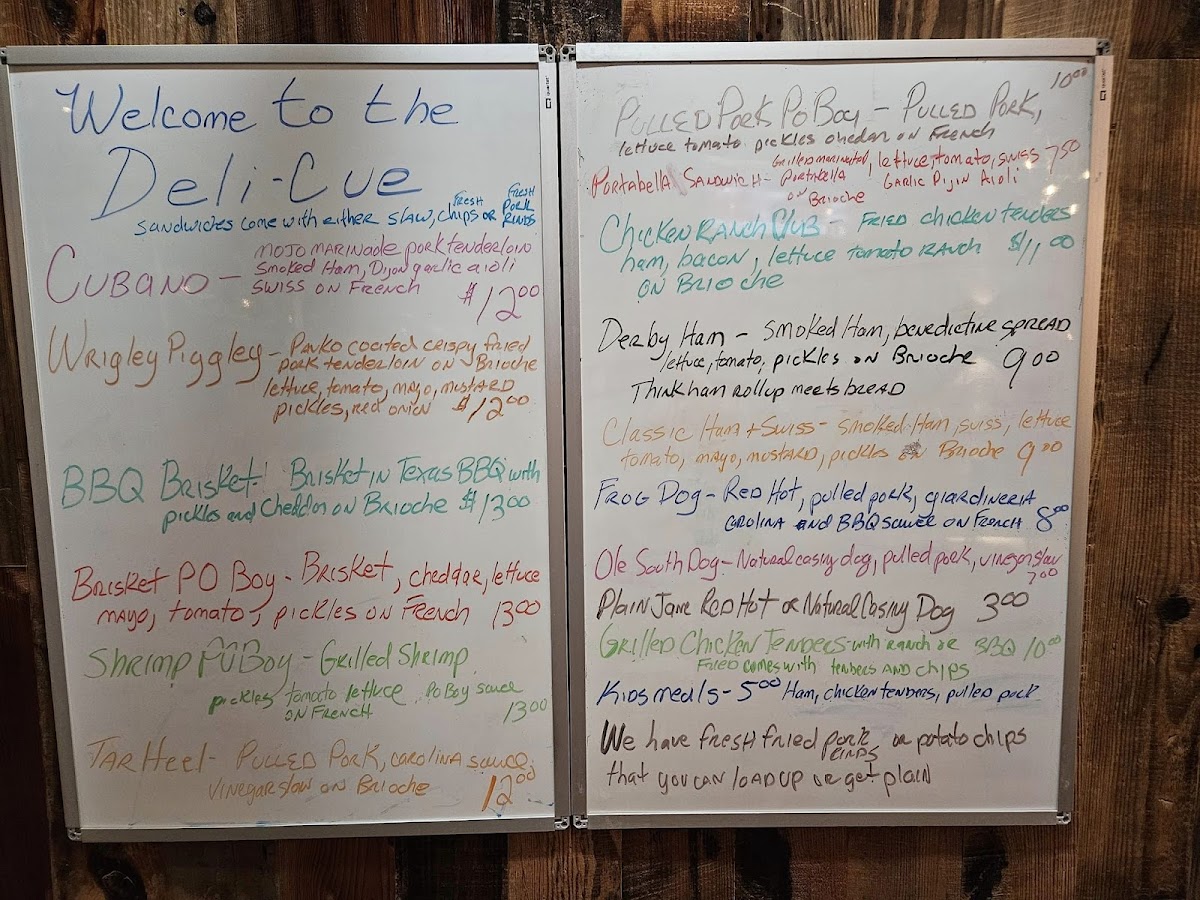 Welcome to the
Deli-Cue
Sandwiches come with either slaw, fresh chips or fresh pork rinds
Cubano - Mojo marinade pork tenderloin
Smoked Ham, Dijon garlic aioli
Swiss on French $12.00
Wrigley Piggley - Panko coated crispy fried
pork tenderloin on Brioche
lettuce, tomato, mayo, mustard
pickles, red onion $12.00
BBQ Brisket! Brisket in Texas BBQ with
pickles and Cheddar on Brioche $13.00
Brisket PO Boy - Brisket, cheddar, lettuce
mayo, tomato, pickles on French 13.00
Shrimp PO Boy - Grilled Shrimp
pickles tomato lettuce PO Boy sauce
on French 13.00
Tar Heel - Pulled Pork, carolina sauce,
vinegar slaw on Brioche 12.00
Pulled Pork Po Boy - Pulled Pork, 10.00
lettuce tomato pickles chedar on French
Portabella Sandwich - Grilled marinated Portabella on Brioche, lettuce, tomato, swiss 7.50
Garlic Dijin Aioli
Chicken Ranch Club Fried chicken tenders
ham, bacon, lettuce tomato ranch $11.00
on Brioche
Derby Ham - Smoked Ham, benedictine spread
lettuce, tomato, pickles on Brioche 9.00
Think ham rollup meets bread
Classic Ham + Swiss - smoked Ham, swiss, lettuce
tomato, mayo, mustard, pickles Brioche 9.00
Frog Dog - Red Hot, pulled pork, giardineria
carolina and BBQ sauce on French 8.00
Ole South Dog - Natural casing dog, pulled pork, vinegar slaw
7.00
Plain Jane Red Hot or Natural Casing Dog 3.00
Grilled Chicken Tenders - with ranch or BBQ 10.00
Fried comes with tenders and chips
Kids meals - 5.00 Ham, chicken tenders, pulled pork
We have fresh fried pork rinds or potato chips
that you can load up or get plain